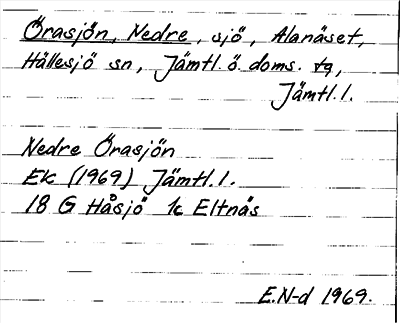 Örasjön, Nedre, sjö, Alanäset,
Hällesjö sn, Jämtl. ö. doms. tg,
Jämtl. l.
Nedre Örasjön
Ek (1969) Jämtl. l.
18 G Håsjö 1c Eltnäs
E.N-d 1969.